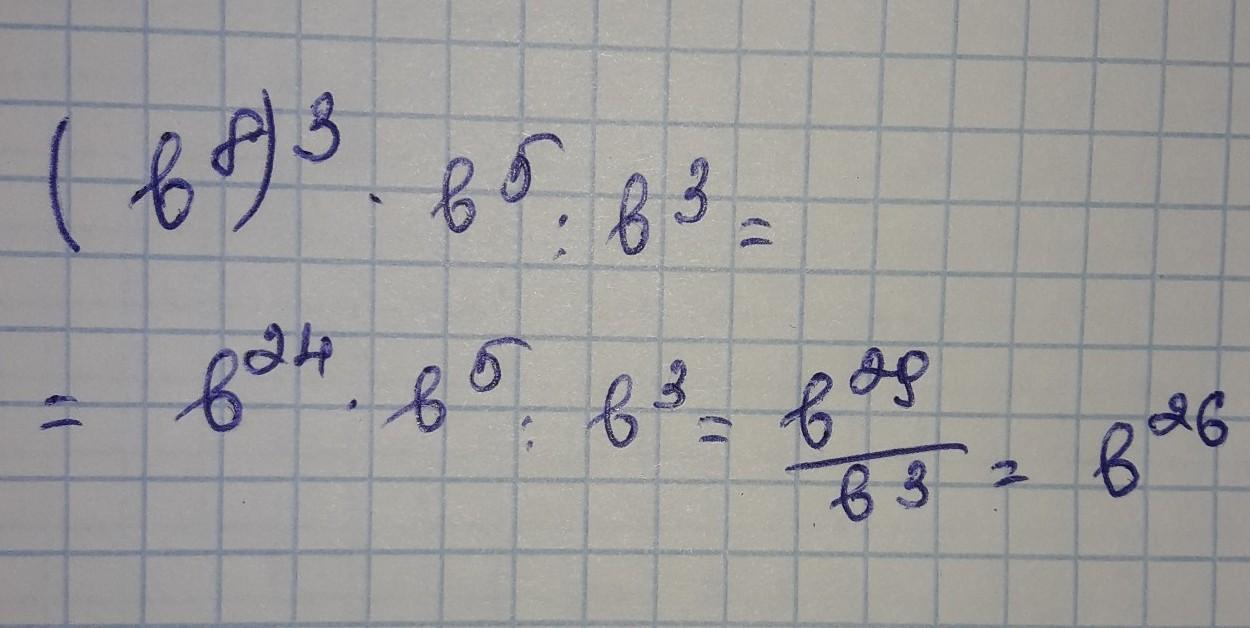 (b⁸)³ · b⁵ : b³ =
= b²⁴ · b⁵ : b³ = b²⁹/b³ = b²⁶